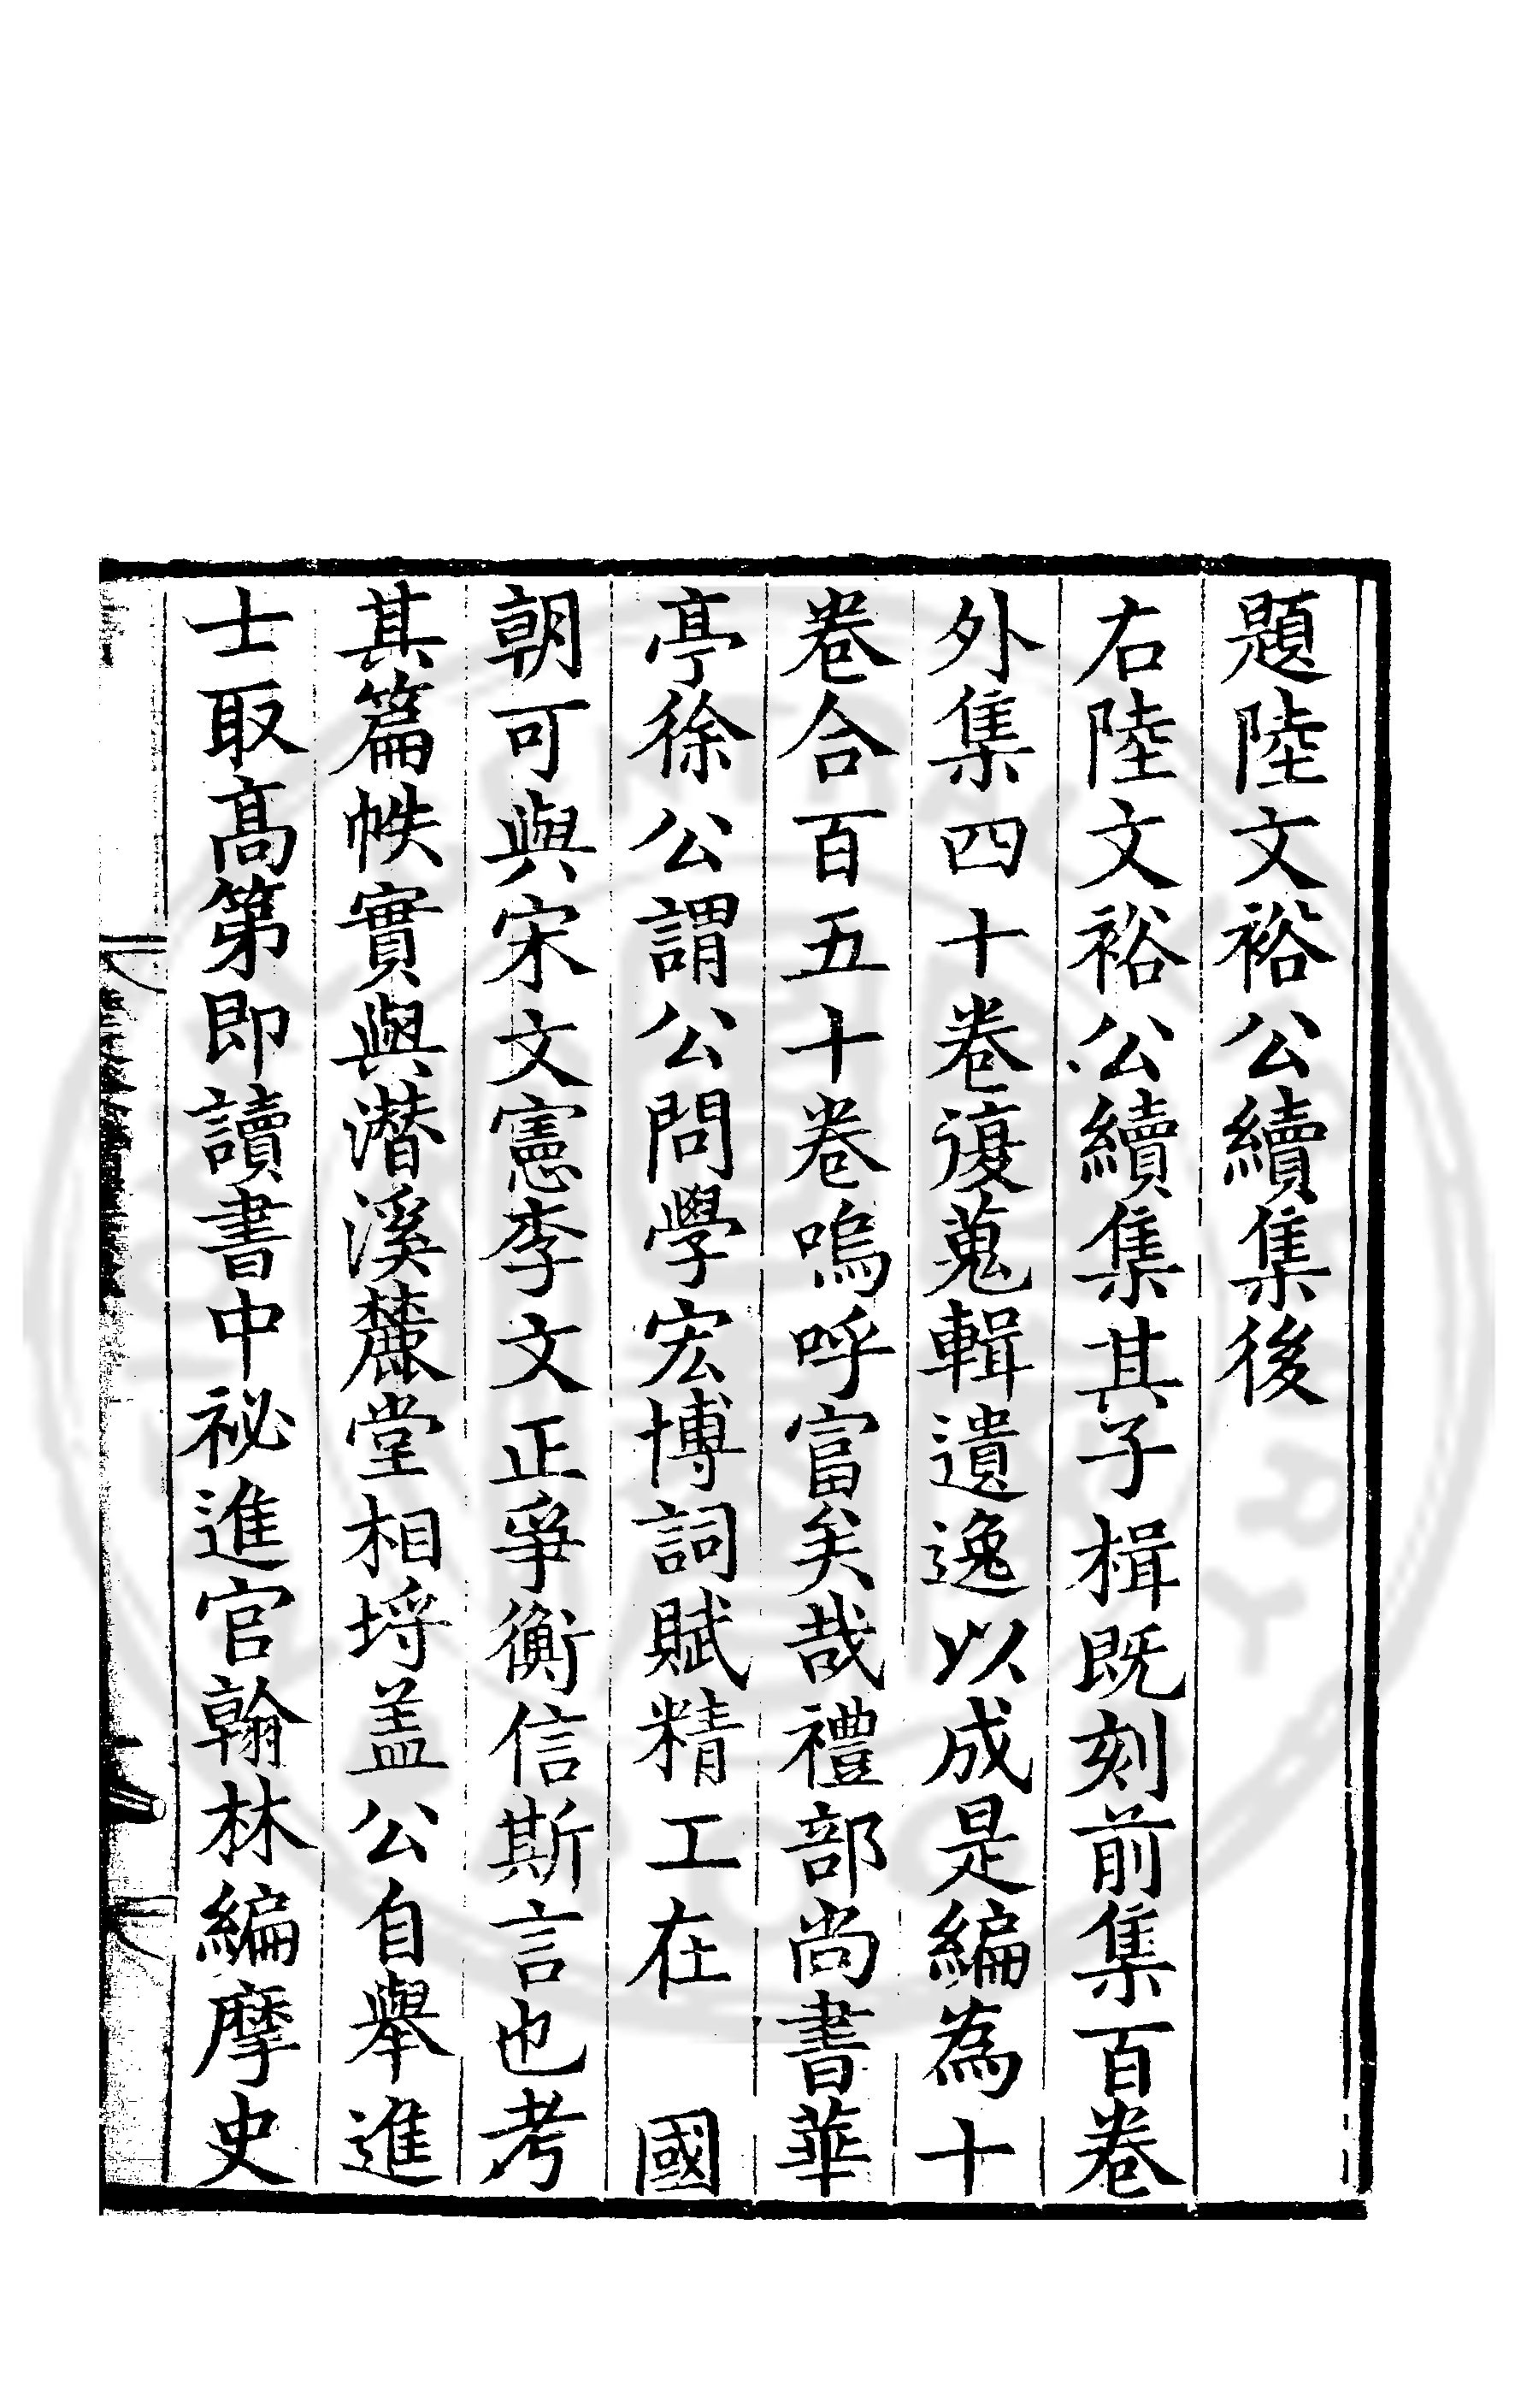 題陸文裕公續集後
右陸文裕公續集其子楫既刻前集百卷
外集四十卷復蒐輯遺逸以成是編為十
卷合百五十卷嗚呼富矣哉禮部尚書華
亭徐公謂公問學宏博詞賦精工在　國
朝可與宋文憲李文正爭衡信斯言也考
其篇帙實與潛溪麓堂相埒盖公自舉進
士取高第即讀書中祕進官翰林編摩史